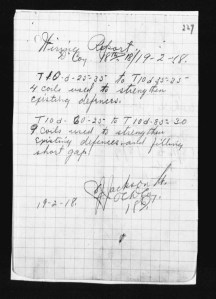 229
Wiring Report
D Coy 18th Bn 19-2-18.
T10-d-25-35 to T10d 35-25
4 coils used to strengthen
existing defences.
T10d-60-25 to T10d 85-20
9 coils used to strengthen
existing defences and filling
short gap.
Jackson
O C D Coy
19-2-18. 18